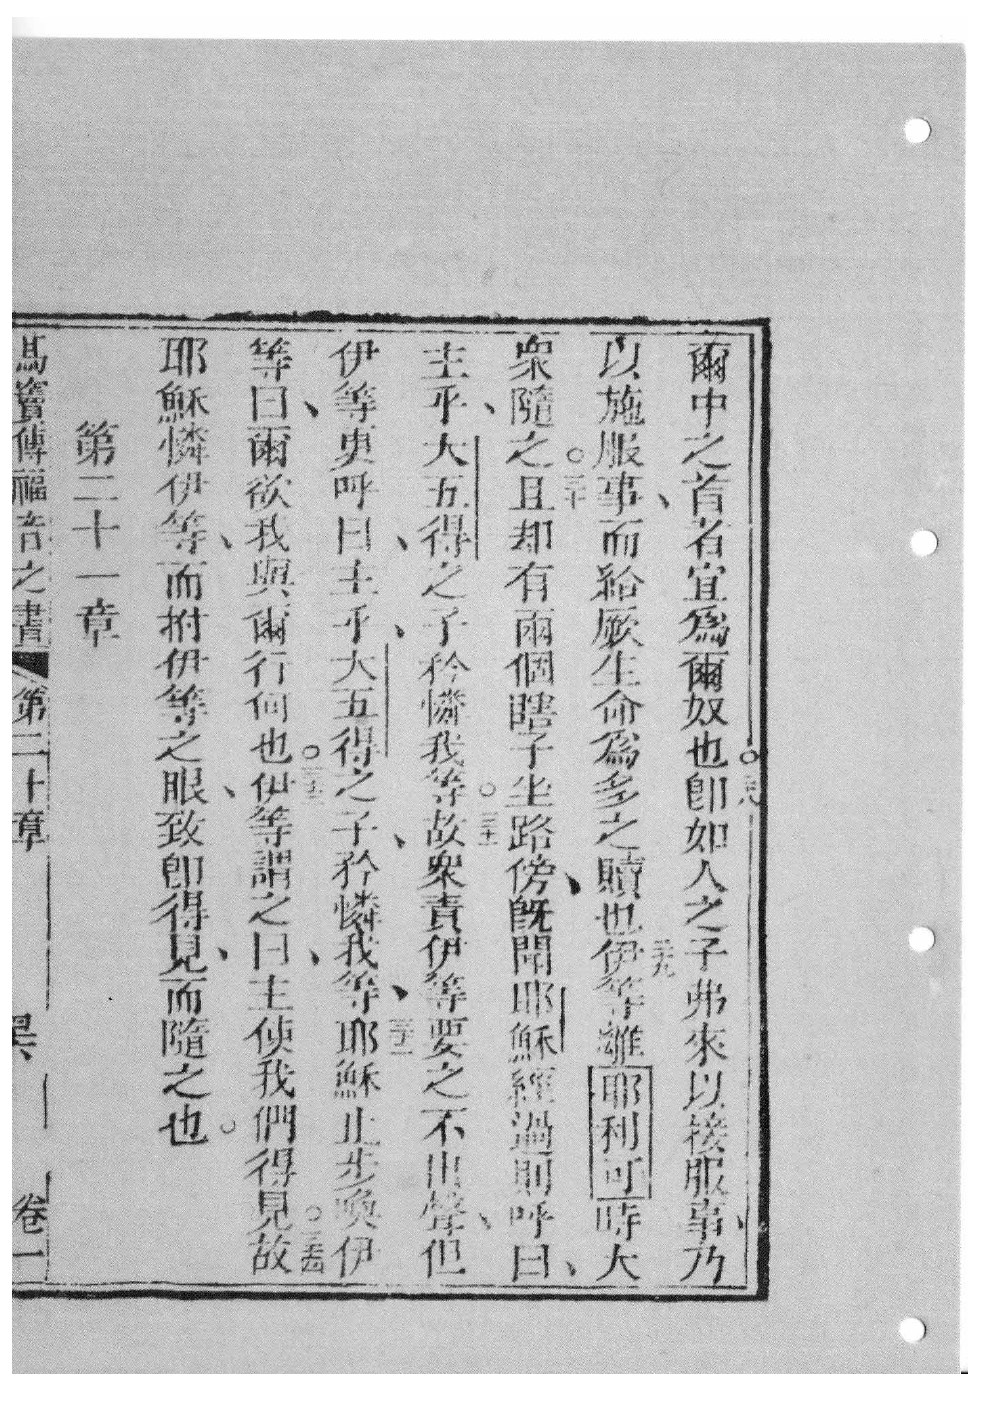 爾中之首者宜爲爾奴也。二八卽如人之子弗來以接服事、乃
以施服事、而給厥生命爲多之贖也。二九伊等離耶利可時大
衆隨之。三十且却有兩個瞎子坐路傍、旣聞耶穌經過則呼曰、
主乎、大五得之子矜憐我等。三十一故衆責伊等要之不出聲、但
伊等更呼曰、主乎、大五得之子、矜憐我等、三十二耶穌止步喚伊
等曰、爾欲我與爾行何也。三十三伊等謂之曰、主使我們得見。三十四故
耶穌憐伊等、而拊伊等之眼、致卽得見、而隨之也。
第二十一章
馬竇傳福音之書 第二十章 卷一